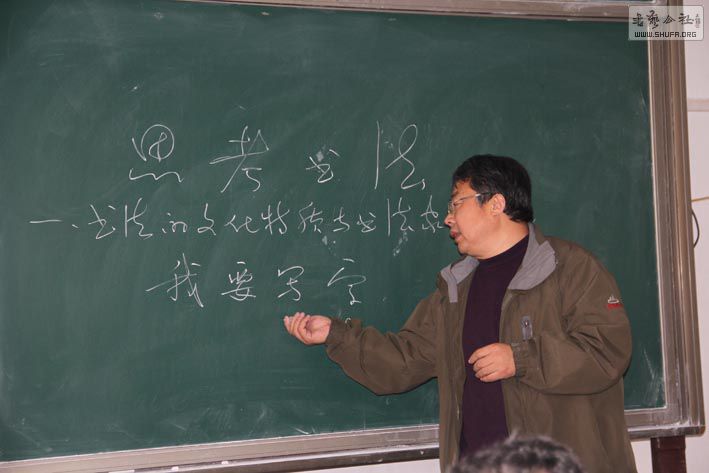 书艺公社
WWW.SHUFA.ORG
思考书法
一、书法的文化特质与书法家
我要写字